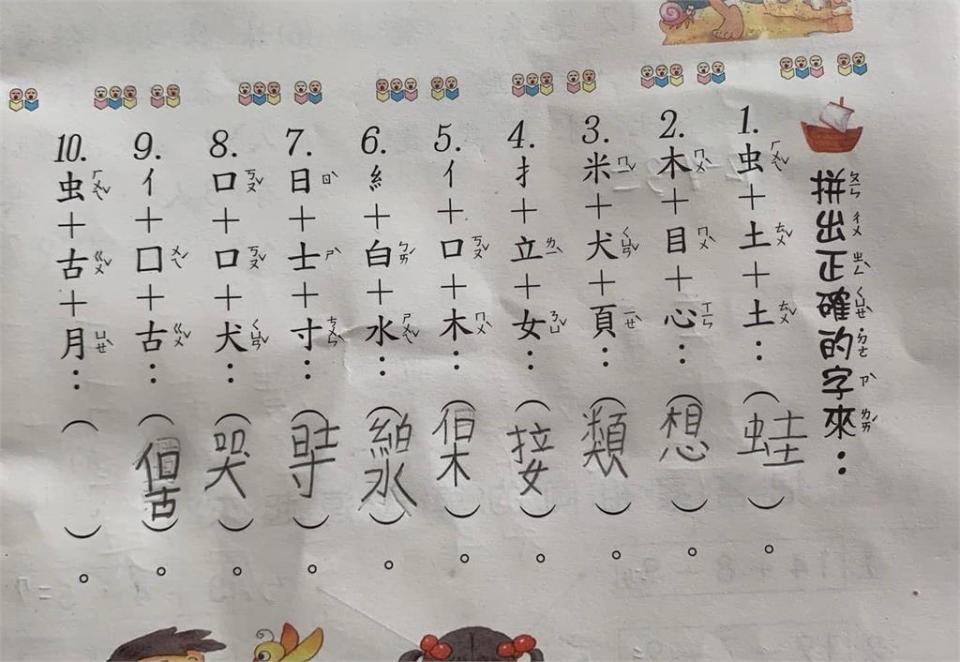 拼ㄆㄧㄣ出ㄔㄨ正ㄓㄥˋ確ㄑㄩㄝˋ的ㄉㄜ˙字ㄗˋ來ㄌㄞˊ：
1.虫ㄏㄨㄟˇ＋土ㄊㄨˇ＋土ㄊㄨˇ：（蛙）。
2.木ㄇㄨˋ＋目ㄇㄨˋ＋心ㄒㄧㄣ：（想）。
3.米ㄇㄧˇ＋犬ㄑㄩㄢˇ＋頁ㄧㄝˋ：（類）。
4.扌＋立ㄌㄧˋ＋女ㄋㄩˇ：（接）。
5.亻＋口ㄎㄡˇ＋木ㄇㄨˋ：（保）。
6.糹＋白ㄅㄞˊ＋水ㄕㄨㄟˇ：（線）。
7.日ㄖˋ＋士ㄕˋ＋寸ㄘㄨㄣˋ：（時）。
8.口ㄎㄡˇ＋口ㄎㄡˇ＋犬ㄑㄩㄢˇ：（哭）。
9.亻＋囗ㄨㄟˊ＋古ㄍㄨˇ：（個）。
10.虫ㄏㄨㄟˇ＋古ㄍㄨˇ＋月ㄩㄝˋ：（）。